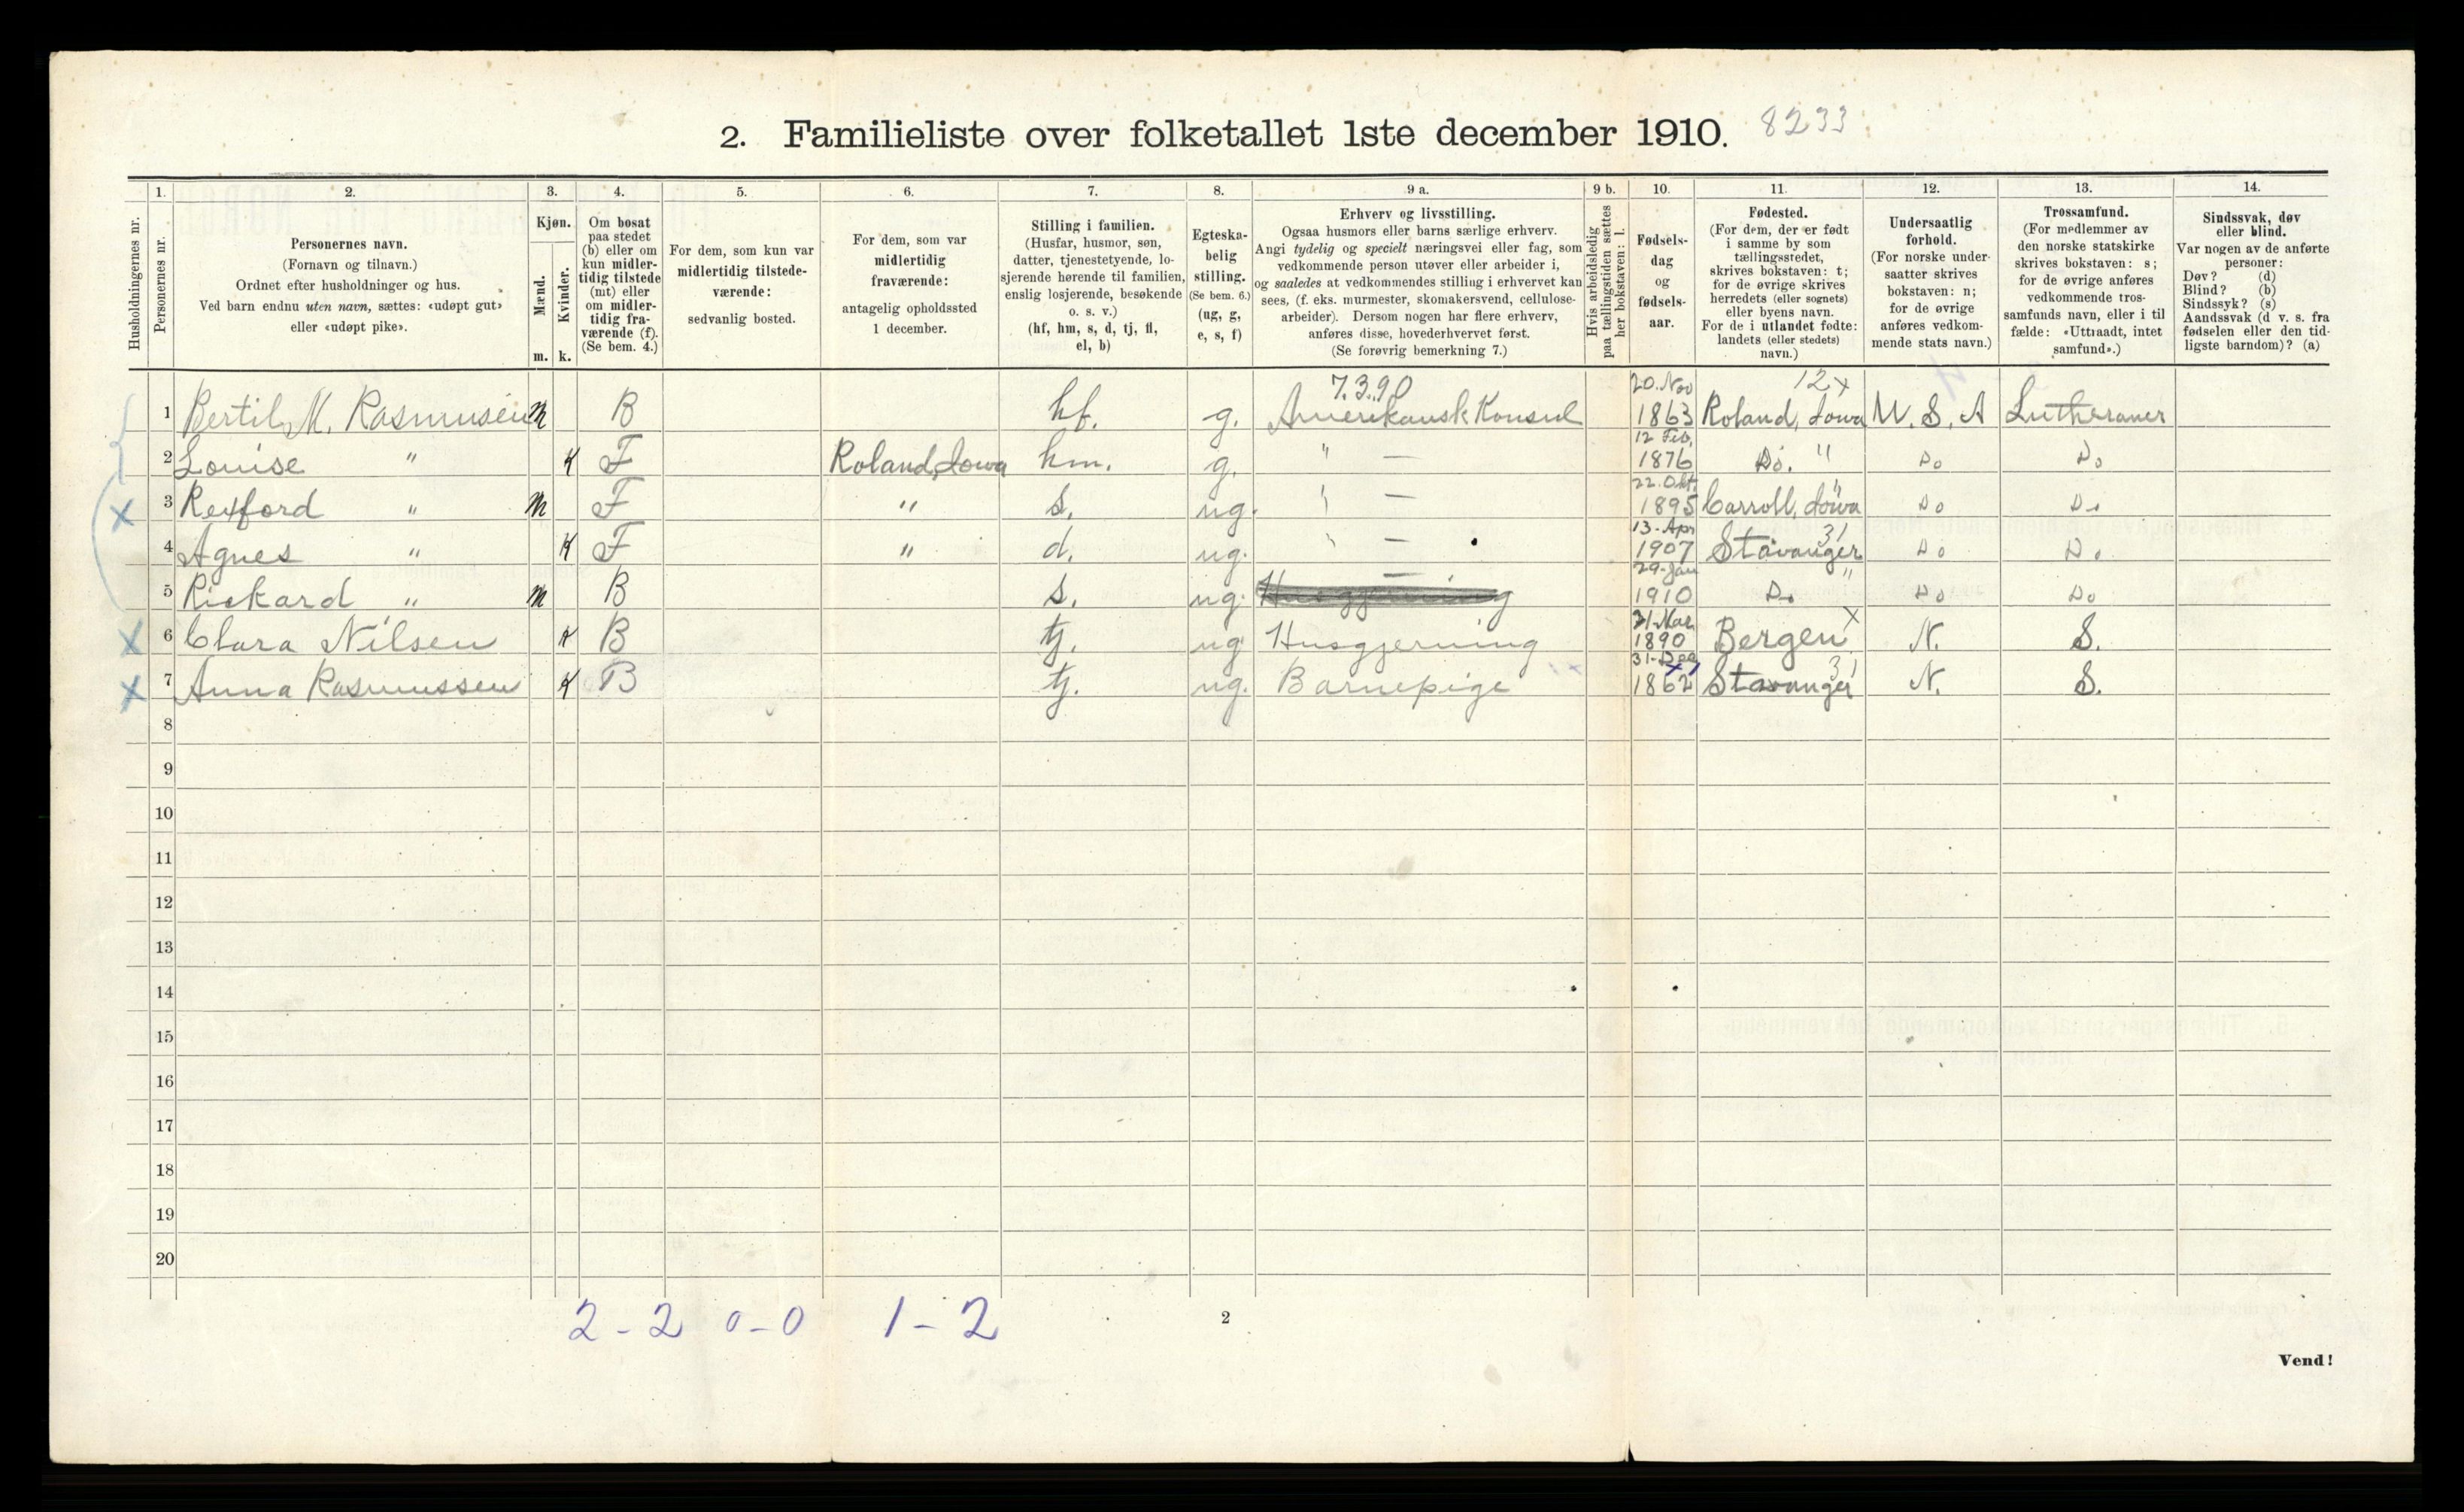 2. Familieliste over folketallet 1ste december 1910. 8233
Husholdningernes nr.
1.
Personernes nr.
2.
Personernes navn.
(Fornavn og tilnavn.)
Ordnet efter husholdninger og hus.
Ved barn endnu uten navn, sættes: «udøpt gut»
eller «udøpt pike».
3.
Kjøn.
Mænd.
Kvinder.
m. k.
4.
Om bosat
paa stedet
(b) eller om
kun midler-
tidig tilstede
(mt) eller
om midler-
tidig fra-
værende (f).
(Se bem. 4.)
5.
For dem, som kun var
midlertidig tilstede-
værende:
sedvanlig bosted.
6.
For dem, som var
midlertidig
fraværende:
antagelig opholdssted
1 december.
7.
Stilling i familien.
(Husfar, husmor, søn,
datter, tjenestetyende, lo-
sjerende hørende til familien,
enslig losjerende, besøkende
o. s. v.)
(hf, hm, s, d, tj, fl,
el, b)
8.
Egteska-
belig
stilling.
(Se bem. 6.)
(ug, g,
e, s, f)
9 a.
Erhverv og livsstilling.
Ogsaa husmors eller barns særlige erhverv.
Angi tydelig og specielt næringsvei eller fag, som
vedkommende person utøver eller arbeider i,
og saaledes at vedkommendes stilling i erhvervet kan
sees, (f. eks. murmester, skomakersvend, cellulose-
arbeider). Dersom nogen har flere erhverv,
anføres disse, hovederhvervet først.
(Se forøvrig bemerkning 7.)
9 b.
Hvis arbeidsledig
paa tællingstiden sættes
her bokstaven: l.
10.
Fødsels-
dag
og
fødsels-
aar.
11.
Fødested.
(For dem, der er født
i samme by som
tællingsstedet,
skrives bokstaven: t;
for de øvrige skrives
herredets (eller sognets)
eller byens navn.
For de i utlandet fødte:
landets (eller stedets)
navn.)
12.
Undersaatlig
forhold.
(For norske under-
saatter skrives
bokstaven: n;
for de øvrige
anføres vedkom-
mende stats navn.)
13.
Trossamfund.
(For medlemmer av
den norske statskirke
skrives bokstaven: s;
for de øvrige anføres
vedkommende tros-
samfunds navn, eller i til-
fælde: «Uttraadt, intet
samfund».)
14.
Sindssvak, døv
eller blind.
Var nogen av de anførte
personer:
Døv? (d)
Blind? (b)
Sindssyk? (s)
Aandssvak (d v. s. fra
fødselen eller den tid-
ligste barndom)? (a)
7.3.90 20. Nov 12 x
1 Bertil M. Rasmusen m B hf. g. Amerikansk Konsul 1863 Roland, Iowa U. S. A Lutheraner
12 Feb.
2 Louise " K F Roland, Iowa hm. g. " — 1876 Do. " Do Do
22. Okt.
x 3 Rexford " m F " s. ug. " — 1895 Carroll, Iowa Do Do
13. Apr 31
4 Agnes " K F " d. ug. " — 1907 Stavanger Do Do
29. Jan "
5 Rickard " m B s. ug. — 1910 Do Do Do
21. Mar x
x 6 Clara Nilsen K B tj. ug Husgjerning 1890 Bergen N. S.
31. Dec 31
x 7 Anna Rasmussen K B tj. ug. Barnepige 1862 Stavanger N. S.
8
9
10
11
12
13
14
15
16
17
18
19
20
2 - 2 0 - 0 1 - 2
2
Vend!